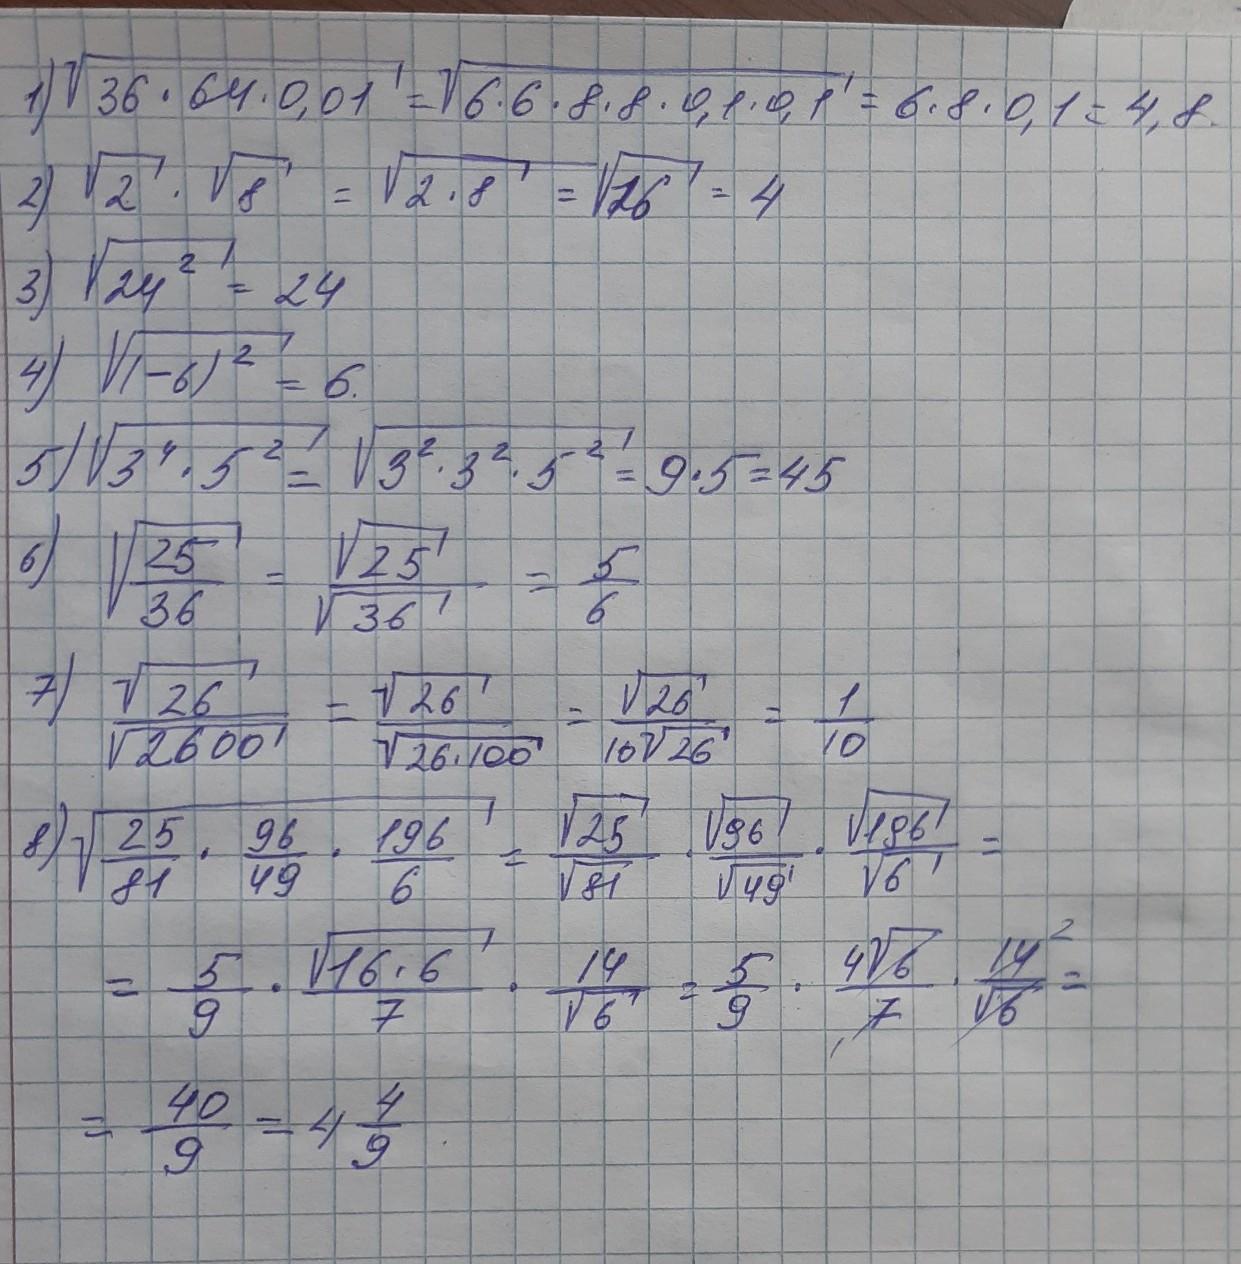 1) √36·64·0,01 = √6·6·8·8·0,1·0,1 = 6·8·0,1 = 4,8.
2) √2 · √8 = √2·8 = √16 = 4
3) √24² = 24
4) √(-6)² = 6.
5) √3⁴·5² = √3²·3²·5² = 9·5 = 45
6) √25/36 = √25/√36 = 5/6
7) √26/√2600 = √26/√26·100 = √26/10√26 = 1/10
8) √25/81 · 96/49 · 196/6 = √25/√81 · √96/√49 · √196/√6 =
= 5/9 · √16·6/7 · 14/√6 = 5/9 · 4√6/7 · 14²/√6 =
= 40/9 = 4 4/9